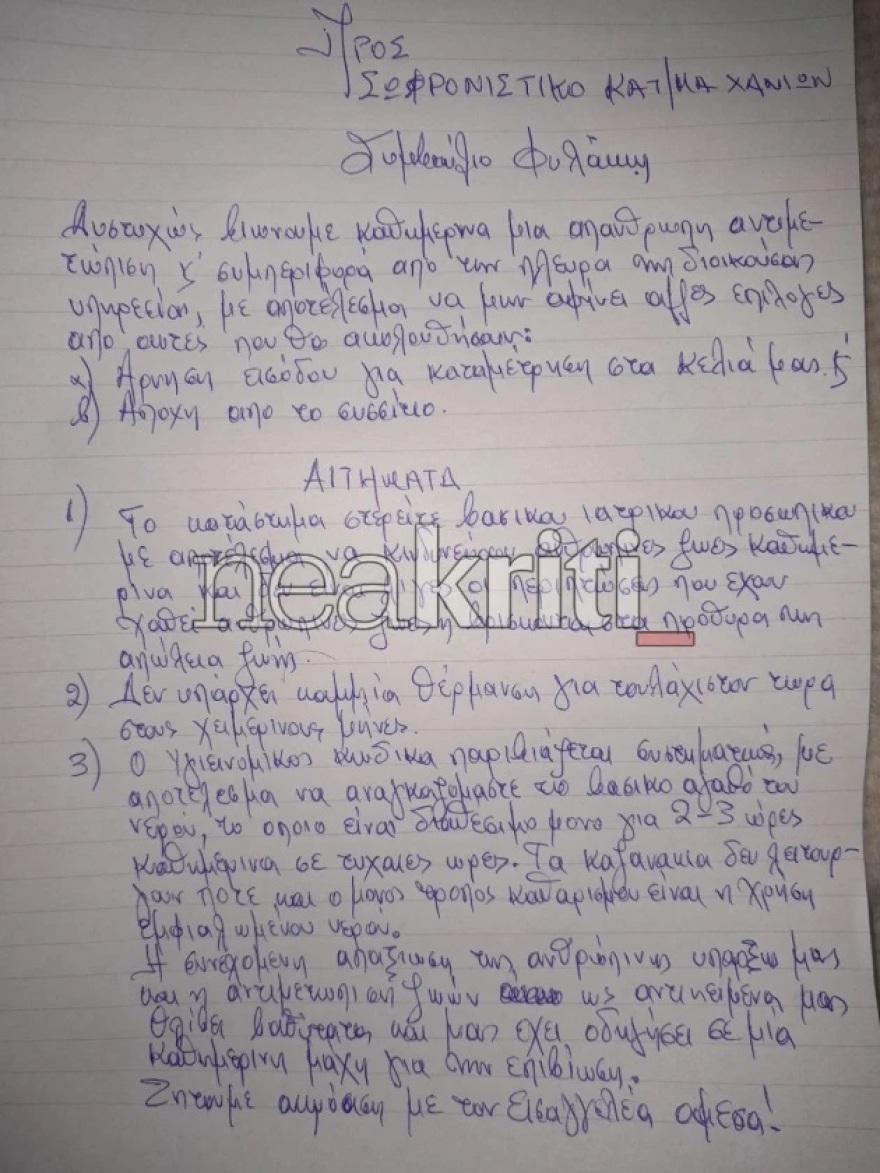 Προς
ΣΩΦΡΟΝΙΣΤΙΚΟ ΚΑΤ/ΜΑ ΧΑΝΙΩΝ
Συμβούλιο Φυλάκης
Δυστυχώς βιωνουμε καθημερινα μια απανθρωπη αντιμε-
τώπιση ς' συμπεριφορά από την πλευρα της διοικούσας
υπηρεσίας, με αποτέλεσμα να μην αφήνει αλλες επιλογες
απο αυτές που θα ακολουθήσουν:
α) Αρνηση εισόδου για καταμέτρηση στα κελιά μας. ς'
β) Αποχη απο το συσσίτιο.
ΑΙΤΗΜΑΤΑ
1) Το κατάστημα στερείτε βασικου ιατρικου προσωπικου
με αποτέλεσμα να κινδυνεύουν ανθρωπινες ζωες καθημε-
ρινα και δεν ειναι λιγες οι περιπτώσεις που εχουν
χαθεί ανθρωπινες ζωες η βρισκονται στα πρόθυρα της
απώλεια ζωής.
neakriti
2) Δεν υπάρχει καμμία θέρμανση για τουλάχιστον τωρα
στους χειμερινους μήνες.
3) Ο υγιεινομικος κωδικα παραβιάζεται συστηματικά, με
αποτέλεσμα να αναγκαζομαστε το βασικο αγαθό του
νερού, το οποιο είναι διαθεσιμο μονο για 2-3 ώρες
καθημερινα σε τυχαιες ωρες. Τα καζανακια δεν λειτουρ-
γουν ποτε και ο μονος τροπος καθαρισμου είναι η χρήση
εμφιαλωμενου νερου.
Η συνεχομενη απαξιωση της ανθρώπινης υπαρξης μας
και η αντιμετωπιση ζωών ως αντικείμενα μας
θλίβει βαθύτατα και μας εχει οδηγήσει σε μία
καθημερινη μαχη για την επιβίωση.
Ζητουμε ακρόαση με τον Εισαγγελέα αμεσα!